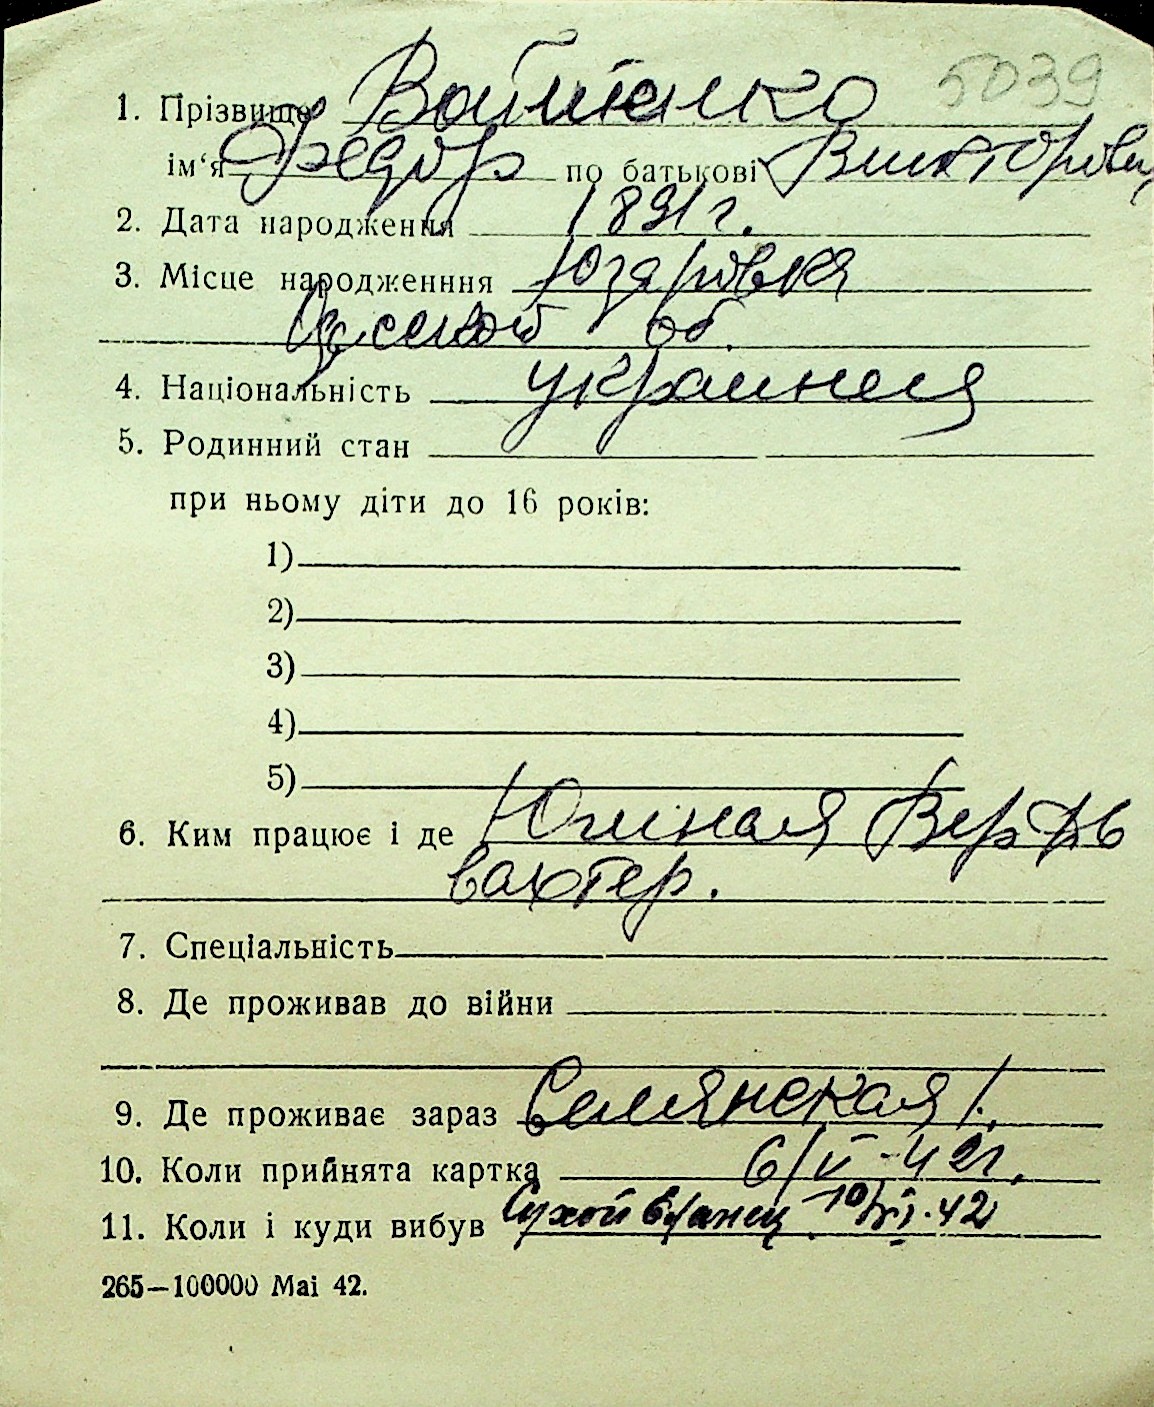 5039
1. Прізвище Войтенко
ім‘я Федор по батькові Викторович
2. Дата народження 1891 г.
3. Місце народженння
Одесской об.
4. Національність украинец
5. Родинний стан
при ньому діти до 16 років:
1)
2)
3)
4)
5)
6. Ким працює і де Южная Верфь
вахтер.
7. Спеціальність
8. Де проживав до війни
9. Де проживає зараз 1.
10. Коли прийнята картка 6/V-42г.
11. Коли і куди вибув Сухой Еланец 10/VI.42
265—100000 Mai 42.